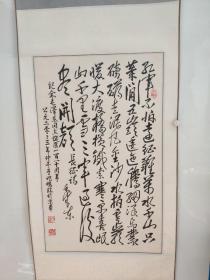 红军不怕远征难万水千山只
等闲五岭逶迤腾细浪乌蒙
磅礴走泥丸金沙水拍云崖
暖大渡桥横铁索寒更喜岷
山千里雪三军过后
尽开颜 长征诗 毛泽东
纪念毛泽东同志诞辰一百二十周年
公元二零一三年